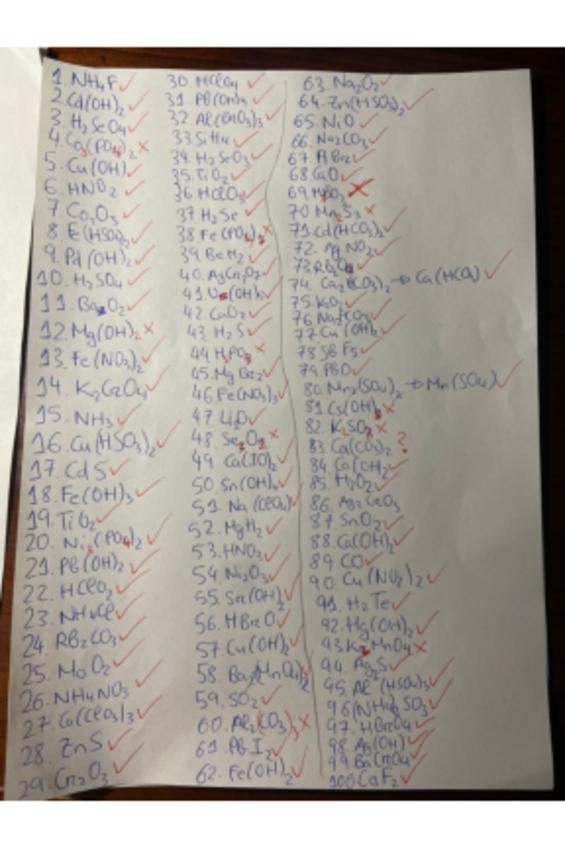 1. NH4F
2. Cd(OH)2
3. H2SeO4
4. Co3(PO4)2
5. Cu(OH)
6. HNO2
7. Co2O3
9. Pd(OH)2
10. H2SO4
11. BaO2
12. Mg(OH)2
13. Fe(NO3)2
14. K2Cr2O7
15. NH3
16. Cu(HSO3)2
17. CdS
18. Fe(OH)3
19. TiO2
20. Ni3(PO4)2
21. Pb(OH)2
22. HClO2
23. NH4Cl
24. Rb2CO3
25. MoO2
26. NH4NO3
27. Co(ClO3)3
28. ZnS
29. Cr2O3
30. HClO4
31. Pb(OH)4
32. Al(BrO3)3
33. SiH4
34. H2SeO3
35. TiO2
36. HClO3
37. H2Se
38. Fe(PO4)3
39. BeH2
40. AgCr2O7
42. CaO2
43. H2S
44. HPO3
45. MgBr2
46. Fe(NO3)3
47. Li2O
48. Se2O2
49. Ca(IO)2
50. Sn(OH)4
51. Na(ClO4)
52. MgH2
53. HNO3
54. Ni2O3
55. Sn(OH)2
56. HBrO
57. Cu(OH)2
58. Ba(MnO4)2
59. SO2
60. Al2(CO3)3
61. PbI2
62. Fe(OH)2
63. Na2O2
64. Zn(HSO3)2
65. NiO
66. Na2CO3
67. PtBr2
68. CaO
69.
70. Mn2S3
71. Cd(HCO3)2
72. AgNO2
73.
74. Ca2(CO3)2 → Ca(HCO3)
75. KO2
76.
77. Cu(OH)2
78. SbF5
79. PbO
80. Mn2(SO4)2 → Mn(SO4)
81. Cs(OH)2
82. K2SO2
83. Ca(CO3)2 ?
84. Co(OH)2
85. H2O2
86. Ag2CrO3
87. SnO2
88. Ca(OH)2
89. CO
90. Cu(NO2)2
91. H2Te
92. Hg(OH)2
93. K2MnO4
94. Ag2S
95. Al(HSO4)3
96. (NH4)2SO3
97. HBrO4
98. Ag(OH)
99. BaCrO4
100. CaF2